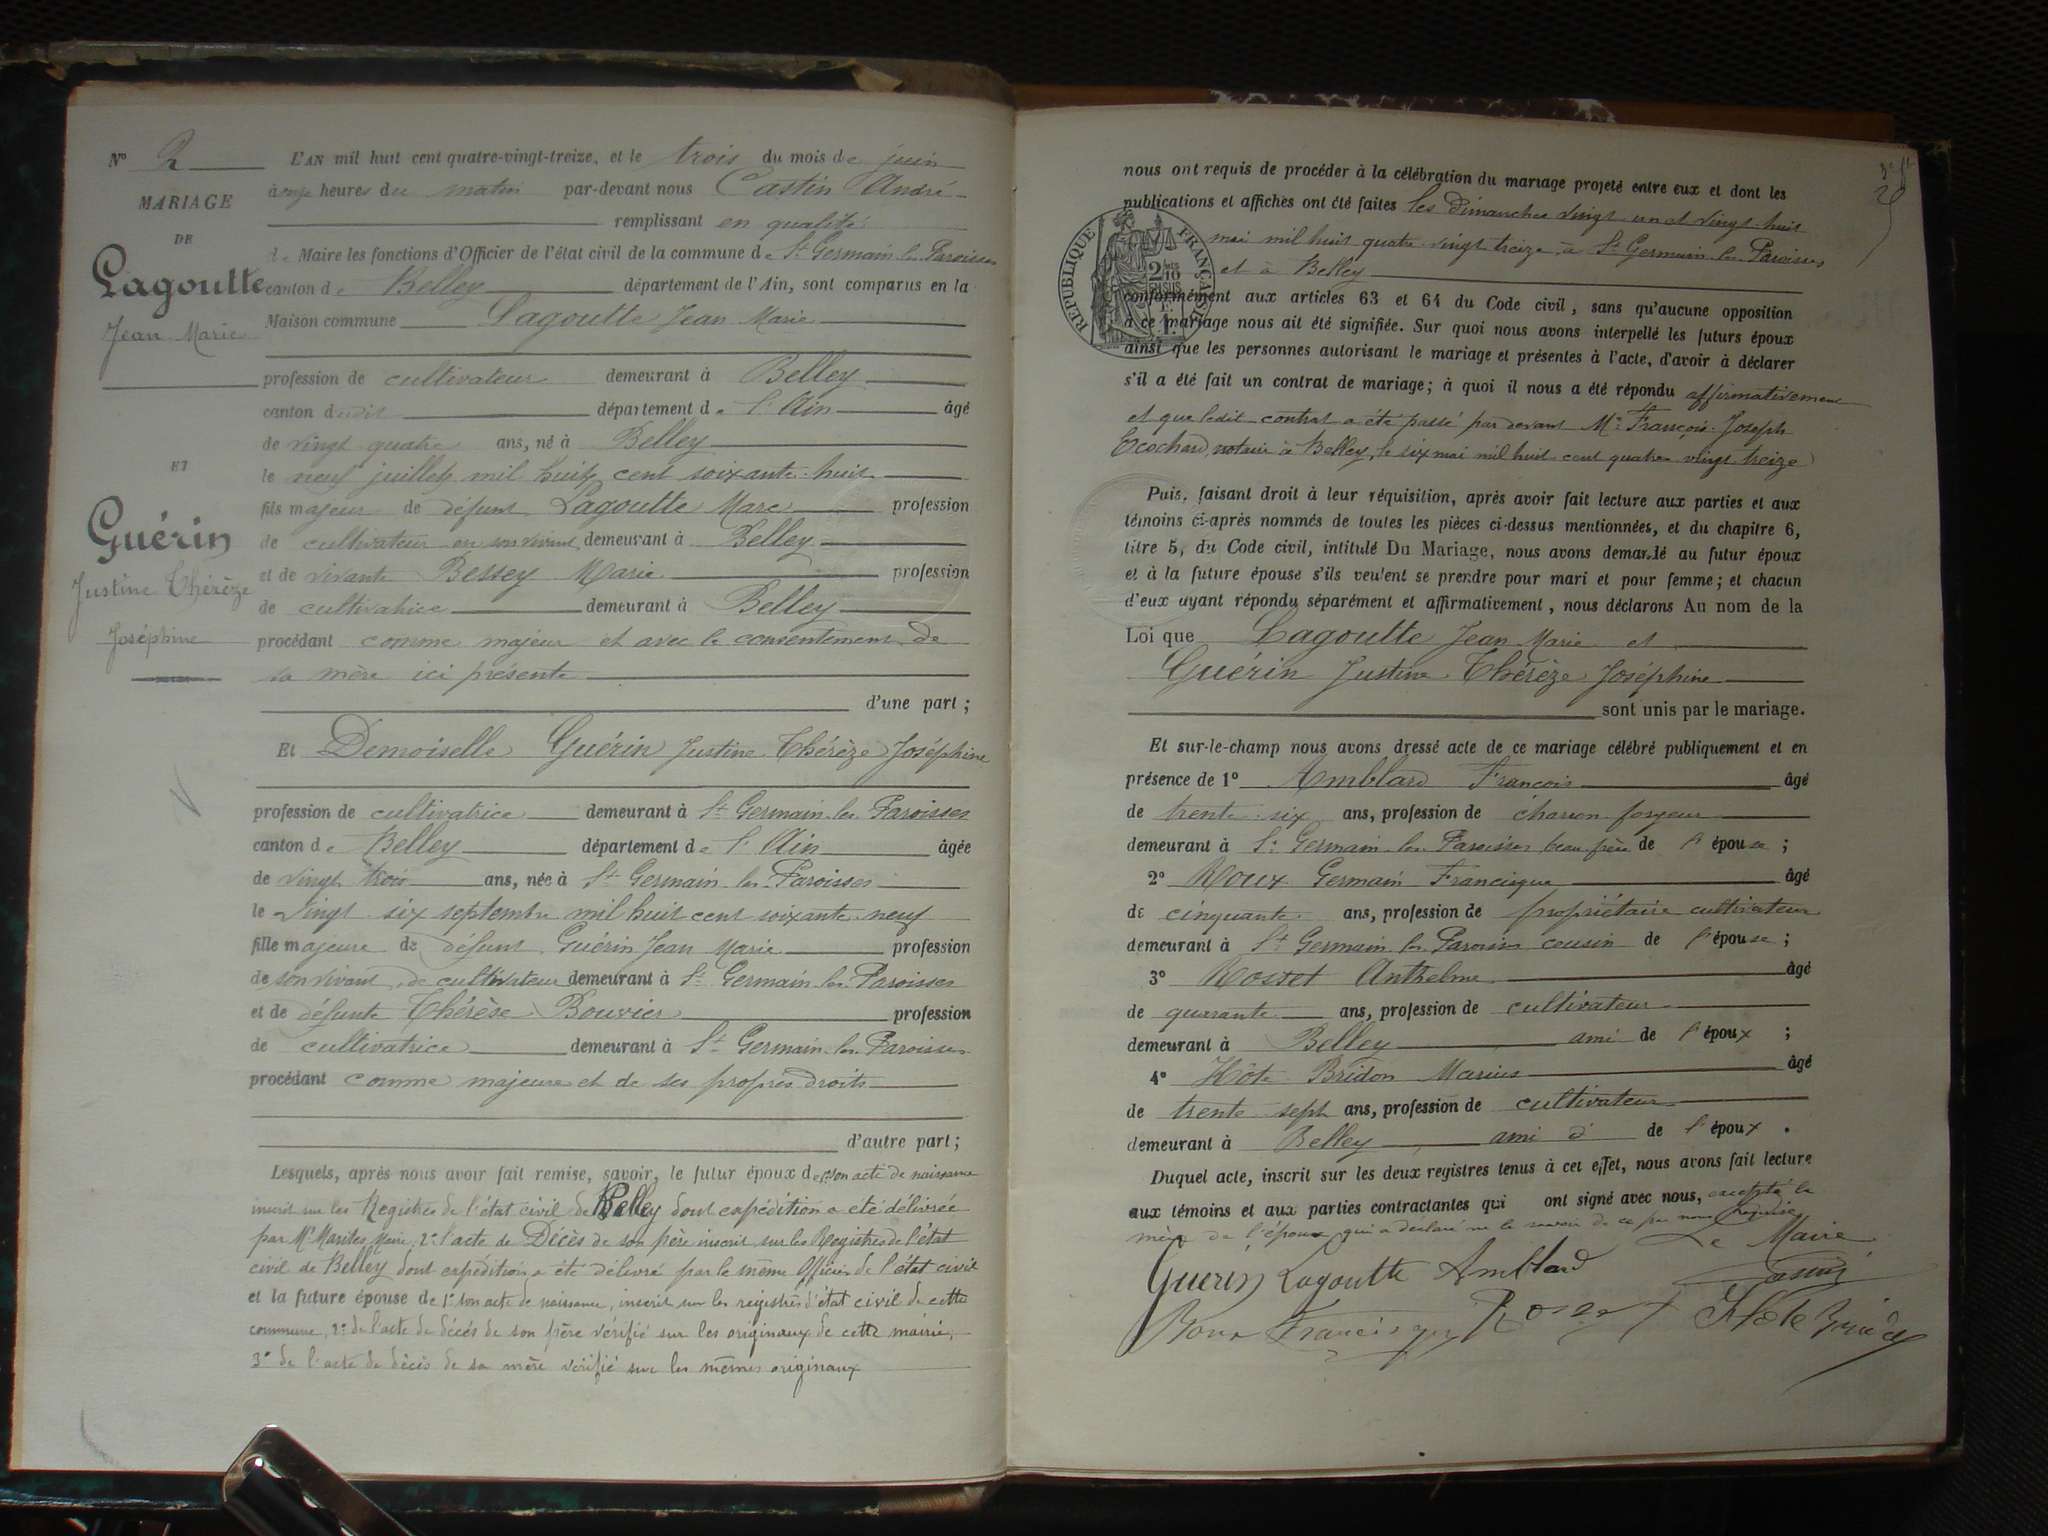 N° 2
MARIAGE
DE
Lagoutte
Jean Marie
ET
Guérin
Justine Thérèze
Joséphine
L'AN mil huit cent quatre-vingt-treize, et le trois du mois de juin
à onze heures du matin par-devant nous Castin André
remplissant en qualité
de Maire les fonctions d'Officier de l'état civil de la commune de St Germain les Paroisses
canton de Belley département de l'Ain, sont comparus en la
Maison commune Lagoutte Jean Marie
profession de cultivateur demeurant à Belley
canton dudit département de l'Ain âgé
de vingt quatre ans, né à Belley
le neuf juillet mil huit cent soixante-huit
fils majeur de défunt Lagoutte Marc profession
de cultivateur en son vivant demeurant à Belley
et de vivante Bessey Marie profession
de cultivatrice demeurant à Belley
procédant comme majeur et avec le consentement de
sa mère ici présente
d'une part ;
Et Demoiselle Guérin Justine Thérèze Joséphine
profession de cultivatrice demeurant à St Germain les Paroisses
canton de Belley département de l'Ain âgée
de vingt trois ans, née à St Germain les Paroisses
le vingt six septembre mil huit cent soixante neuf
fille majeure de défunt Guérin Jean Marie profession
de son vivant de cultivateur demeurant à St Germain les Paroisses
et de défunte Thérèse Bouvier profession
de cultivatrice demeurant à St Germain les Paroisses
procédant comme majeure et de ses propres droits
d'autre part ;
Lesquels, après nous avoir fait remise, savoir, le futur époux de 1° son acte de naissance
inscrit sur les Registres de l'état civil de Belley dont expédition a été délivrée
par Mr Maire, 2° l'acte de Décès de son père inscrit sur les Registres de l'état
civil de Belley dont expédition a été délivré par le même Officier de l'état civil
et la future épouse de 1° son acte de naissance, inscrit sur les registres d'état civil de cette
commune, 2° de l'acte de décés de son père vérifié sur les originaux de cette mairie,
3° de l'acte de décès de sa mère verifié sur les mêmes originaux
nous ont requis de procéder à la célébration du mariage projeté entre eux et dont les
publications et affiches ont été faites les dimanches vingt un et vingt-huit
mai mil huit quatre vingt treize à St Germain les Paroisses
et à Belley
RÉPUBLIQUE FRANÇAISE
conformément aux articles 63 et 64 du Code civil, sans qu'aucune opposition
à ce mariage nous ait été signifiée. Sur quoi nous avons interpellé les futurs époux
ainsi que les personnes autorisant le mariage et présentes à l'acte, d'avoir à déclarer
s'il a été fait un contrat de mariage ; à quoi il nous a été répondu affirmativement
et que ledit contrat a été passé par devant Me François Joseph
notaire à Belley, le six mai mil huit cent quatre vingt treize
Puis, faisant droit à leur réquisition, après avoir fait lecture aux parties et aux
témoins ci-après nommés de toutes les pièces ci-dessus mentionnées, et du chapitre 6,
titre 5, du Code civil, intitulé Du Mariage, nous avons demandé au futur époux
et à la future épouse s'ils veulent se prendre pour mari et pour femme ; et chacun
d'eux ayant répondu séparément et affirmativement, nous déclarons Au nom de la
Loi que Lagoutte Jean Marie et
Guérin Justine Thérèze Joséphine
sont unis par le mariage.
Et sur-le-champ nous avons dressé acte de ce mariage célébré publiquement et en
présence de 1° Amblard François âgé
de trente-six ans, profession de charron forgeur
demeurant à St Germain les Paroisses beau frère de l'épouse ;
2° Roux Germain Francisque âgé
de cinquante ans, profession de propriétaire cultivateur
demeurant à St Germain les Paroisses cousin de l'épouse ;
3° Rosset Anthelme âgé
de quarante ans, profession de cultivateur
demeurant à Belley ami de l'époux ;
4° Hôte Bridon Marius âgé
de trente sept ans, profession de cultivateur
demeurant à Belley ami d de l'époux.
Duquel acte, inscrit sur les deux registres tenus à cet effet, nous avons fait lecture
aux témoins et aux parties contractantes qui ont signé avec nous, excepté la
mère de l'époux qui a déclaré ne le savoir de ce par nous requise
Le Maire
Guerin Lagoutte Amblard Castin
Roux Francisque Rosset Hote Bridon